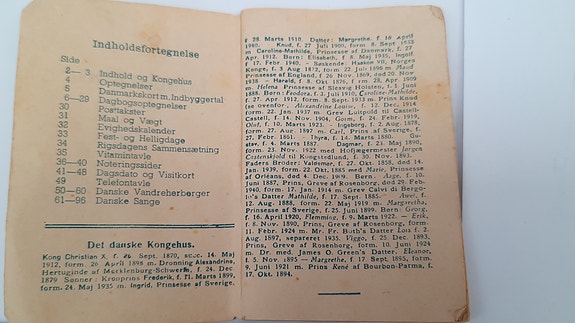 Indholdsfortegnelse
Side
2— 3 Indhold og Kongehus
4 Optegnelser
5 Danmarkskort m. Indbyggertal
6—29 Dagbogsoptegnelser
30 Posttakster
31 Maal og Vægt
32 Evighedskalender
33 Fest- og Helligdage
34 Rigsdagens Sammensætning
35 Vitamintavle
36—40 Noteringssider
41—48 Dagsdato og Visitkort
49 Telefontavle
50—60 Danske Vandreherberger
61—96 Danske Sange
Det danske Kongehus.
Kong Christian X, f. 26. Sept. 1870, succ. 14. Maj
1912, form. 26 April 1898 m. Dronning Alexandrine,
Hertuginde af Mecklenburg-Schwerin, f. 24. Dec.
1879 Sønner: Kronprins Frederik, f. 11. Marts 1899,
form. 24. Maj 1935 m. Ingrid, Prinsesse af Sverige,
f. 28. Marts 1910. Datter: Margrethe, f. 16 April
1940. Knud, f. 27 Juli 1900, form. 8. Sept. 1933
m Caroline-Mathilde, Prinsesse af Danmark, f. 27
Apr. 1912. Børn: Elisabeth, f. 8. Maj 1935, Ingolf,
f. 17. Febr. 1940. — Søskende Haakon VII, Norges
Konge, f. 3 Aug 1872, form. 22. Juli 1896 m Maud
Prinsesse af England, f 26. Nov. 1869, død 20. Nov
1938 — Harald, f. 8. Okt 1876, f rm. 28. Apr. 1909
m. Helena Prinsesse af Slesvig Holsten, f. 1. Juni
1888. Børn: Feodora, f. 3 Juli 1910, Caroline-Mathilde,
f. 27. Apr. 1912, form. 8. Sept. 1933 m. Prins Knud
(se ovenfor), Alexandrine Louise, f. 12. Dec. 1914
form. 22. Jan. 1937 m. Grev Luitpold til Castell-
Castell, f. 14. Nov. 1904, Gorm, f. 24. Febr. 1919,
Oluf, f. 10. Marts 1923. — Ingeborg, f. 2 Aug. 1878,
form. 27. Aug. 1897 m. Carl, Prins af Sverige, f.
27. Febr. 1861. — Thyra, f. 14. Marts 1880. — Gu-
stav, f. 4. Marts 1887. — Dagmar, f. 23. Maj 1890,
form. 23. Nov. 1922 m. Hofjægermester Jørgen
Castenskjold til Kongstedlund, f. 30. Nov. 1893.
Faders Brødre: Valdemar, f. 27. Okt. 1858, død 14.
Jan. 1939, form. 22. Okt. 1885 med Marie, Prinsesse
af Orléans, død 4. Dec. 1909. Børn: Aage, f. 10.
Juni 1887, Prins, Greve af Rosenborg, død 29. Feb.
1940. form. 17. Jan. 1914 m. Grev Calvi di Bergo-
lo's Datter Mathilde, f. 17. Sept. 1885. — Axel, f.
12. Aug. 1888, form. 22. Maj 1919 m. Margaretha,
Prinsesse af Sverige, f. 25. Juni 1899. Børn: Georg,
f. 16. April 1920, Flemming, f. 9. Marts 1922. — Erik,
f. 8. Nov. 1890, Prins, Greve af Rosenborg, form.
11. Febr. 1924 m. Mr. Fr. Booth's Datter Lois f. 2.
Aug. 1897, separeret 1935. Viggo, f. 25. Dec. 1893,
Prins, Greve af Rosenborg, form. 10. Juni 1924
m. Dr. med. James O. Green's Datter. Eleanor,
f. 5. Nov. 1895. — Margrethe, f. 17. Sept. 1895, form.
9. Juni 1921 m. Prins René af Bourbon-Parma, f.
17. Okt. 1894.